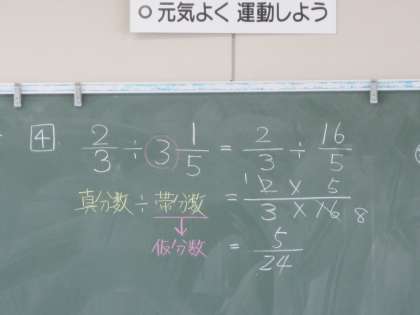 ○ 元気よく 運動しよう
4 2/3 ÷ 3 1/5 = 2/3 ÷ 16/5
真分数 ÷ 帯分数 = 1 2 × 5 / 3 × 16 8
↓
仮分数 = 5/24